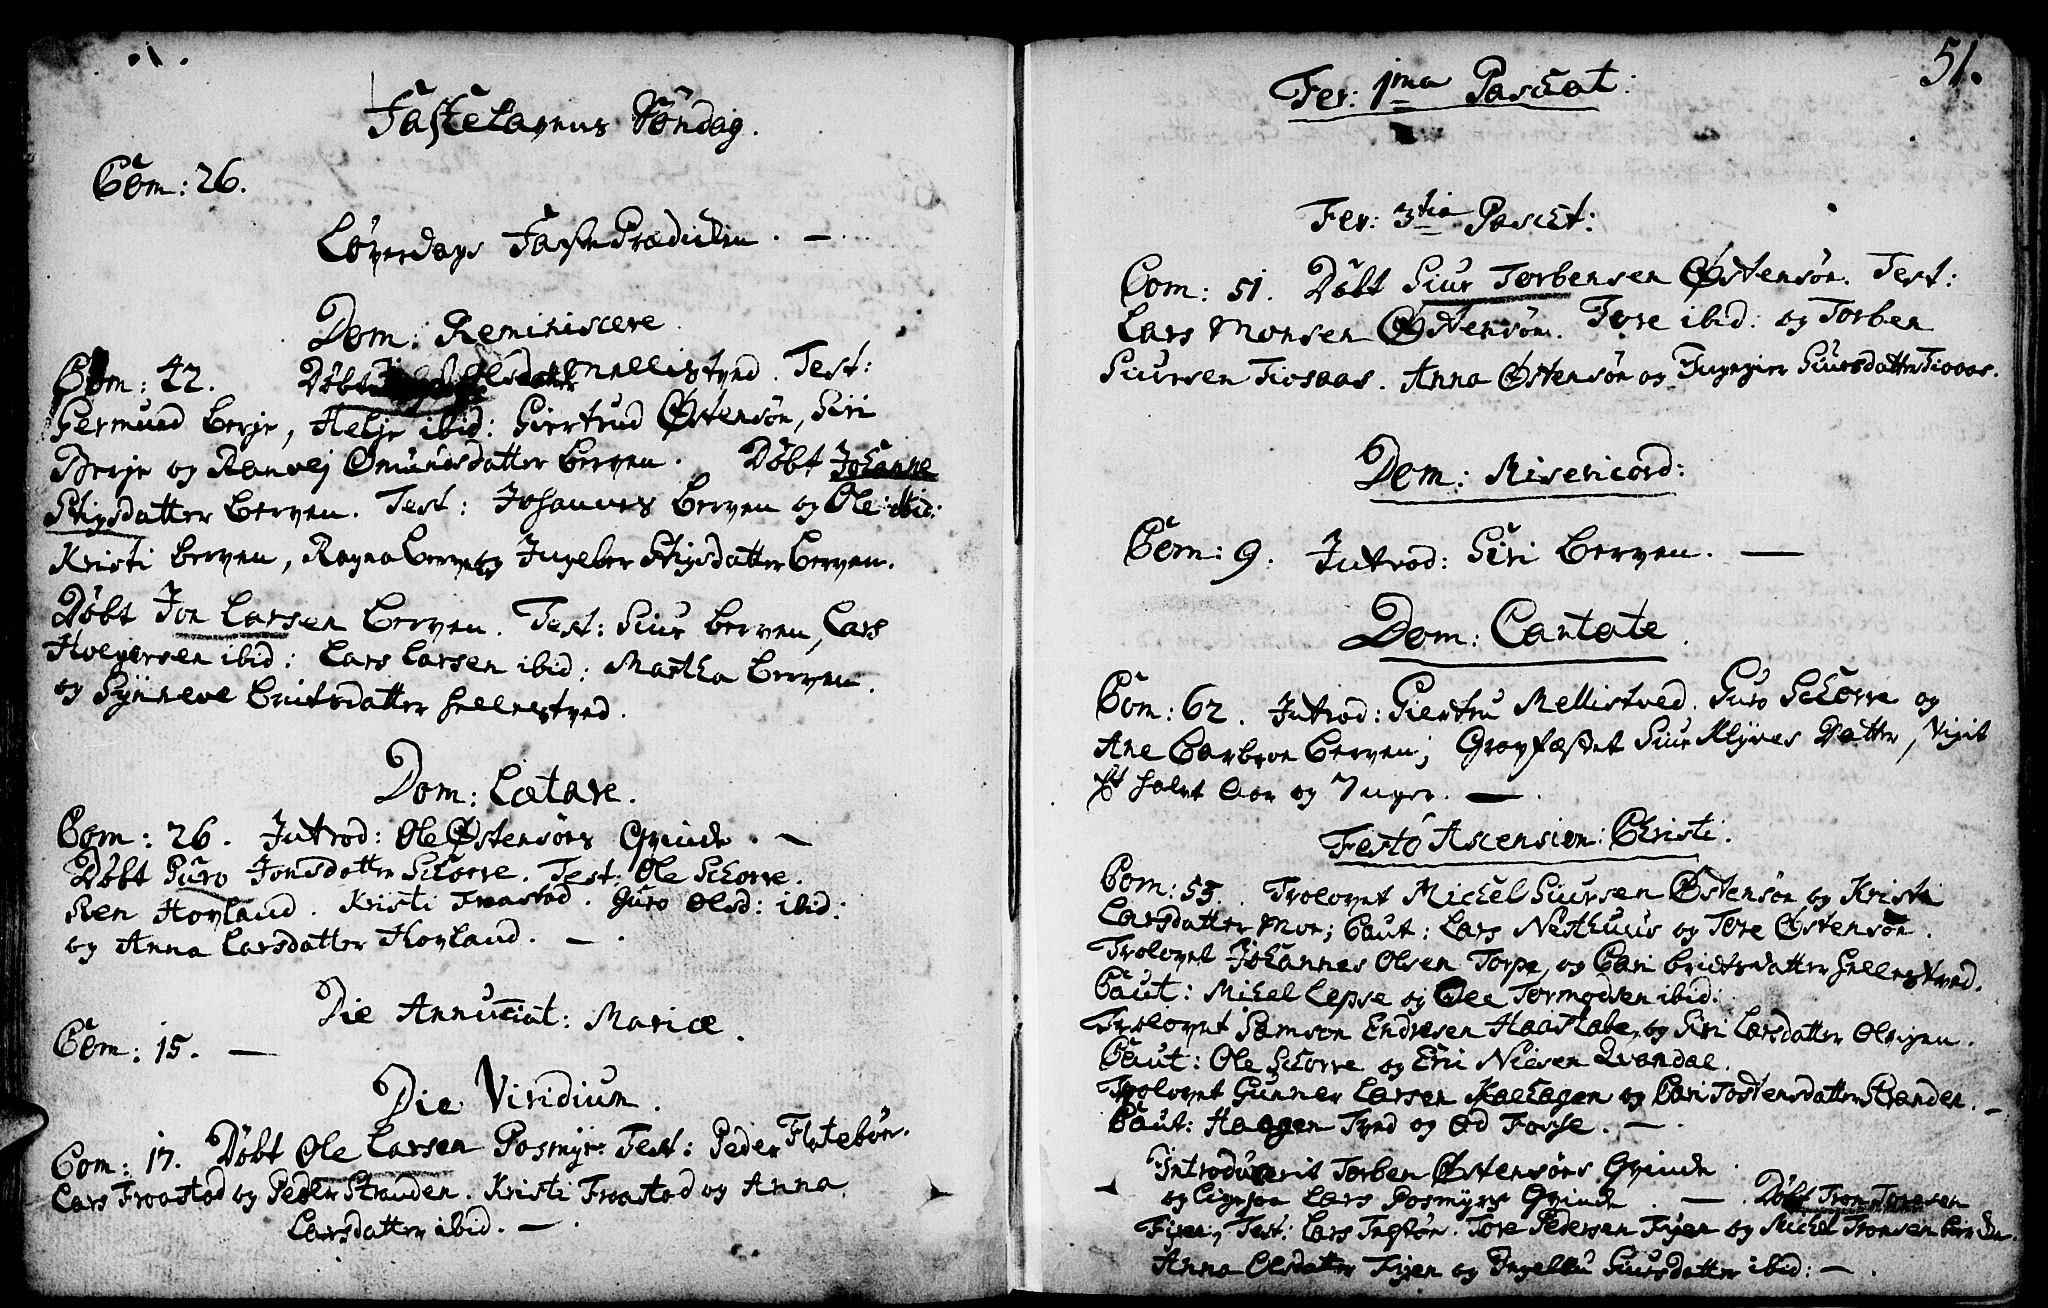 Fastelavens Söndag.
Com: 26.
Löverdags FastePrædiken. —
Dom: Reminiscere.
Com: 42. Döbt Olsdatter Mellistved. Test:
Germund Berje, Helje ibid: Giertrud Østensön, Siri
Berje og Ranvej Omundsdatter Berven. Döbt Johanne
Stigsdatter Berven. Test: Johannes Berven og Ole ibid:
Kristi Berven, Ragna Berven og Ingeber Stigsdatter Berven.
Döbt Jon Larsen Berven. Test: Siur Berven, Lars
Holgersen ibid: Lars Larsen ibid: Martha Berven
og Synneve Britsdatter Hellestved.
Dom: Lætare.
Com: 26. Introd: Ole Østensöns Qvinde. —
Döbt Guro Jonsdatter Schorre. Test: Ole Schorre.
Sten Hovland. Kristi Fraastad. Guro Olsd: ibid:
og Anna Larsdatter Hovland. —
Die Annunciat: Mariæ.
Com: 15. —
Die Viridium.
Com: 17. Döbt Ole Larsen Posmyr. Test: Peder Flotebön.
Lars Fraastad og Peder Stranden. Kristi Fraastad og Anna
Larsdatter ibid. —
51.
Fer: 1ma Paschat:
Fer: 3tia Pasch:
Com: 51. Döbt Siur Torbensen Østensön. Test:
Lars Monsen Østensön. Tore ibid: og Torben
Siursen Tiosaas. Anna Østensön og Ingegier Siursdatter Tioaas.
Dom: Misericord:
Com: 9. Introd: Siri Berven. —
Dom: Cantate.
Com: 62. Introd: Giertru Mellistved. Guro Schorre og
Ane Barbroe Berven; Gravfæstet Siur Klyves Datter, Vixit
et halvt Aar og 7 Uger. —.
Festo Ascension: Christi.
Com: 53. Trolovet Michel Siursen Østensön og Kristi
Larsdatter Moe; Caut: Lars Nesthuus og Tore Østensön.
Trolovet Johannes Olsen Torpe, og Cari Britsdatter Hellestved.
Caut: Michel Lepse og Ole Tormodsen ibid:
Trolovet Samson Endresen Haastabe, og Siri Larsdatter Alvigen.
Caut: Ole Schorre og Eri Nielsen Qvandal.
Trolovet Gunner Larsen Kalhagen og Cari Tostensdatter Stranden. —
Caut: Haagen Tved og Od Fosse. —.
Introducerit Torben Østensöns Qvinde.
og Ligesaa Lars Posmyrs Qvinde. — Döbt Tron Toresen
Fixen, Test: Lars Tveitön. Tore Pedersen Fixen og Michel Tronsen
Anna Olsdatter Fixen og Ingebor Siursdatter ibid: —.